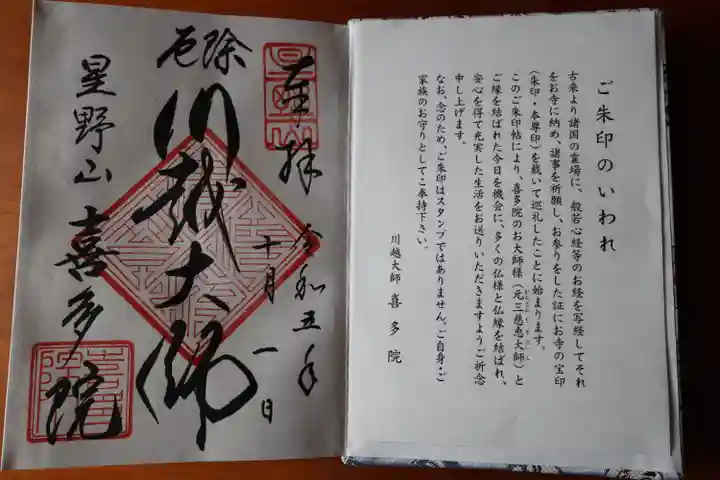 ご朱印のいわれ
古来より諸国の霊場に、般若心経等のお経を写経してそれ
をお寺に納め、諸事を祈願し、お参りをした証にお寺の宝印
(朱印・本尊印)を戴いて巡礼したことに始まります。
このご朱印帖により、喜多院のお大師様(元三慈恵大師)と
ご縁を結ばれた今日を機会に、多くの仏様と仏縁を結ばれ、
安心を得て充実した生活をお送りいただきますようご祈念
申し上げます。
なお、念のため、ご朱印はスタンプではありません。ご自身・ご
家族のお守りとしてご奉持下さい。
川越大師 喜多院
奉拝 令和五年
十月一日
厄除
川越大師
星野山 喜多院